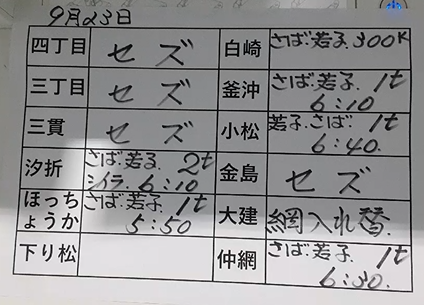 9月23日
四丁目 セズ 白崎 さば.若子.300K
三丁目 セズ 釜沖 さば.若子. 1t
6:10
三貫 セズ 小松 若子.さば. 1t
6:40.
汐折 さば.若子. 2t
シイラ. 6:10
金島 セズ
ほっち
ょうか
さば.若子. 1t
5:50
大建 網入れ替.
下り松 仲網 さば.若子. 1t
6:30.